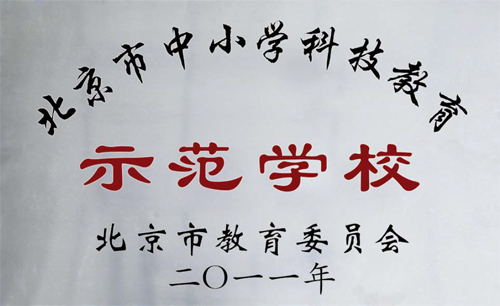 北京市中小学科技教育
示范学校
北京市教育委员会
二〇一一年